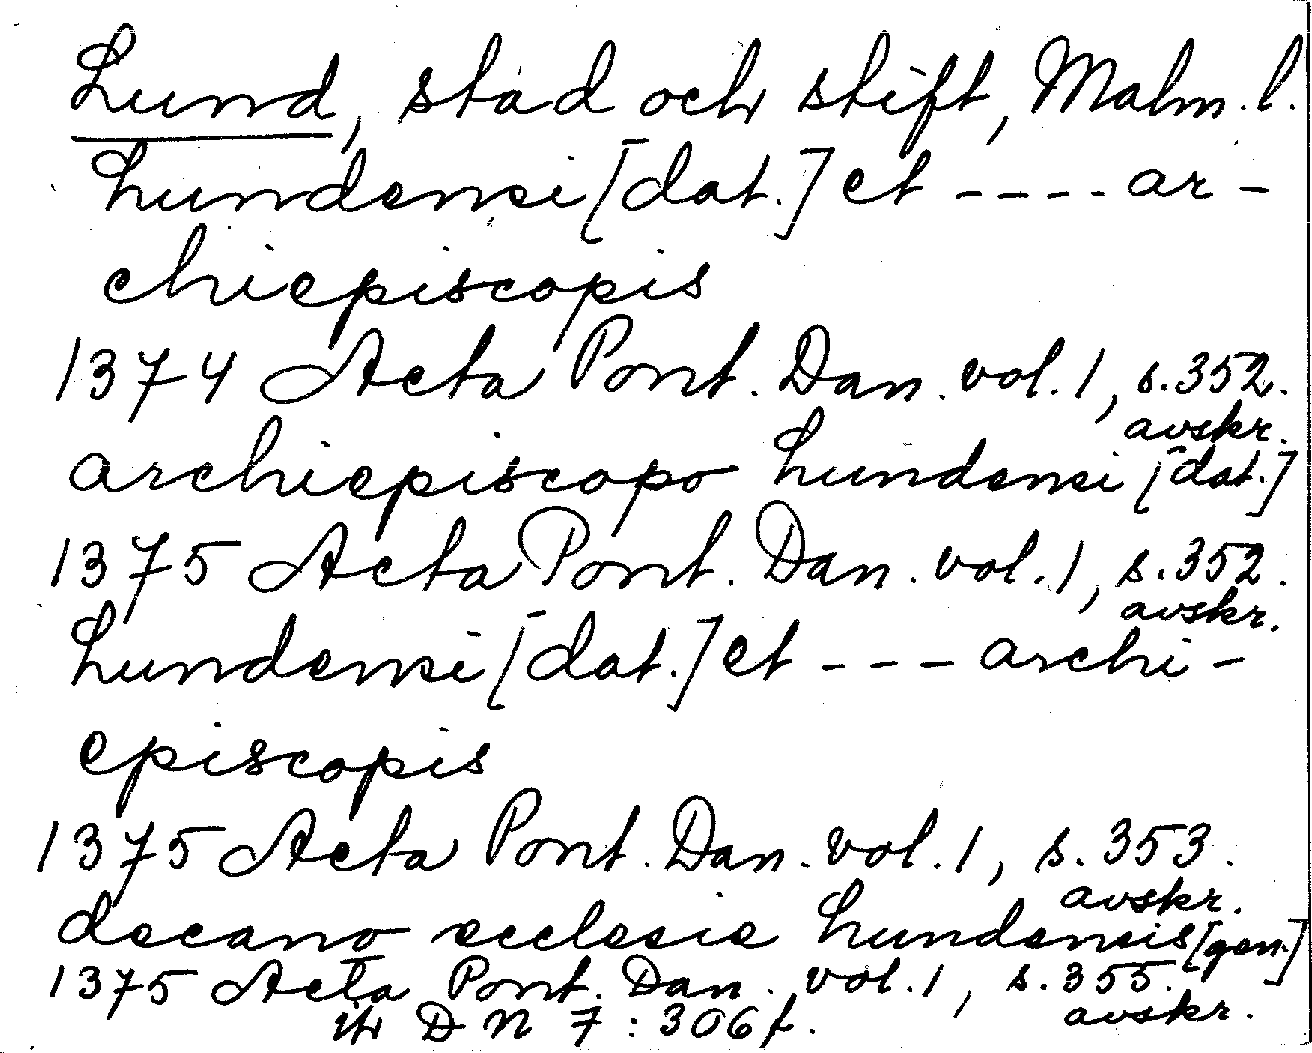 Lund, stad och stift, Malm. l.
Lundensi [dat.] et ---- ar-
chiepiscopis
1374 Acta Pont. Dan. vol. 1, s. 352.
avskr.
archiepiscopo Lundensi [dat.]
1375 Acta Pont. Dan. vol. 1, s. 352.
avskr.
Lundensi [dat.] et --- archi-
episcopis
1375 Acta Pont. Dan. vol. 1, s. 353.
avskr.
decano ecclesie Lundensis [gen.]
1375 Acta Pont. Dan. vol. 1, s. 355.
avskr.
tr DN 7:306 f.